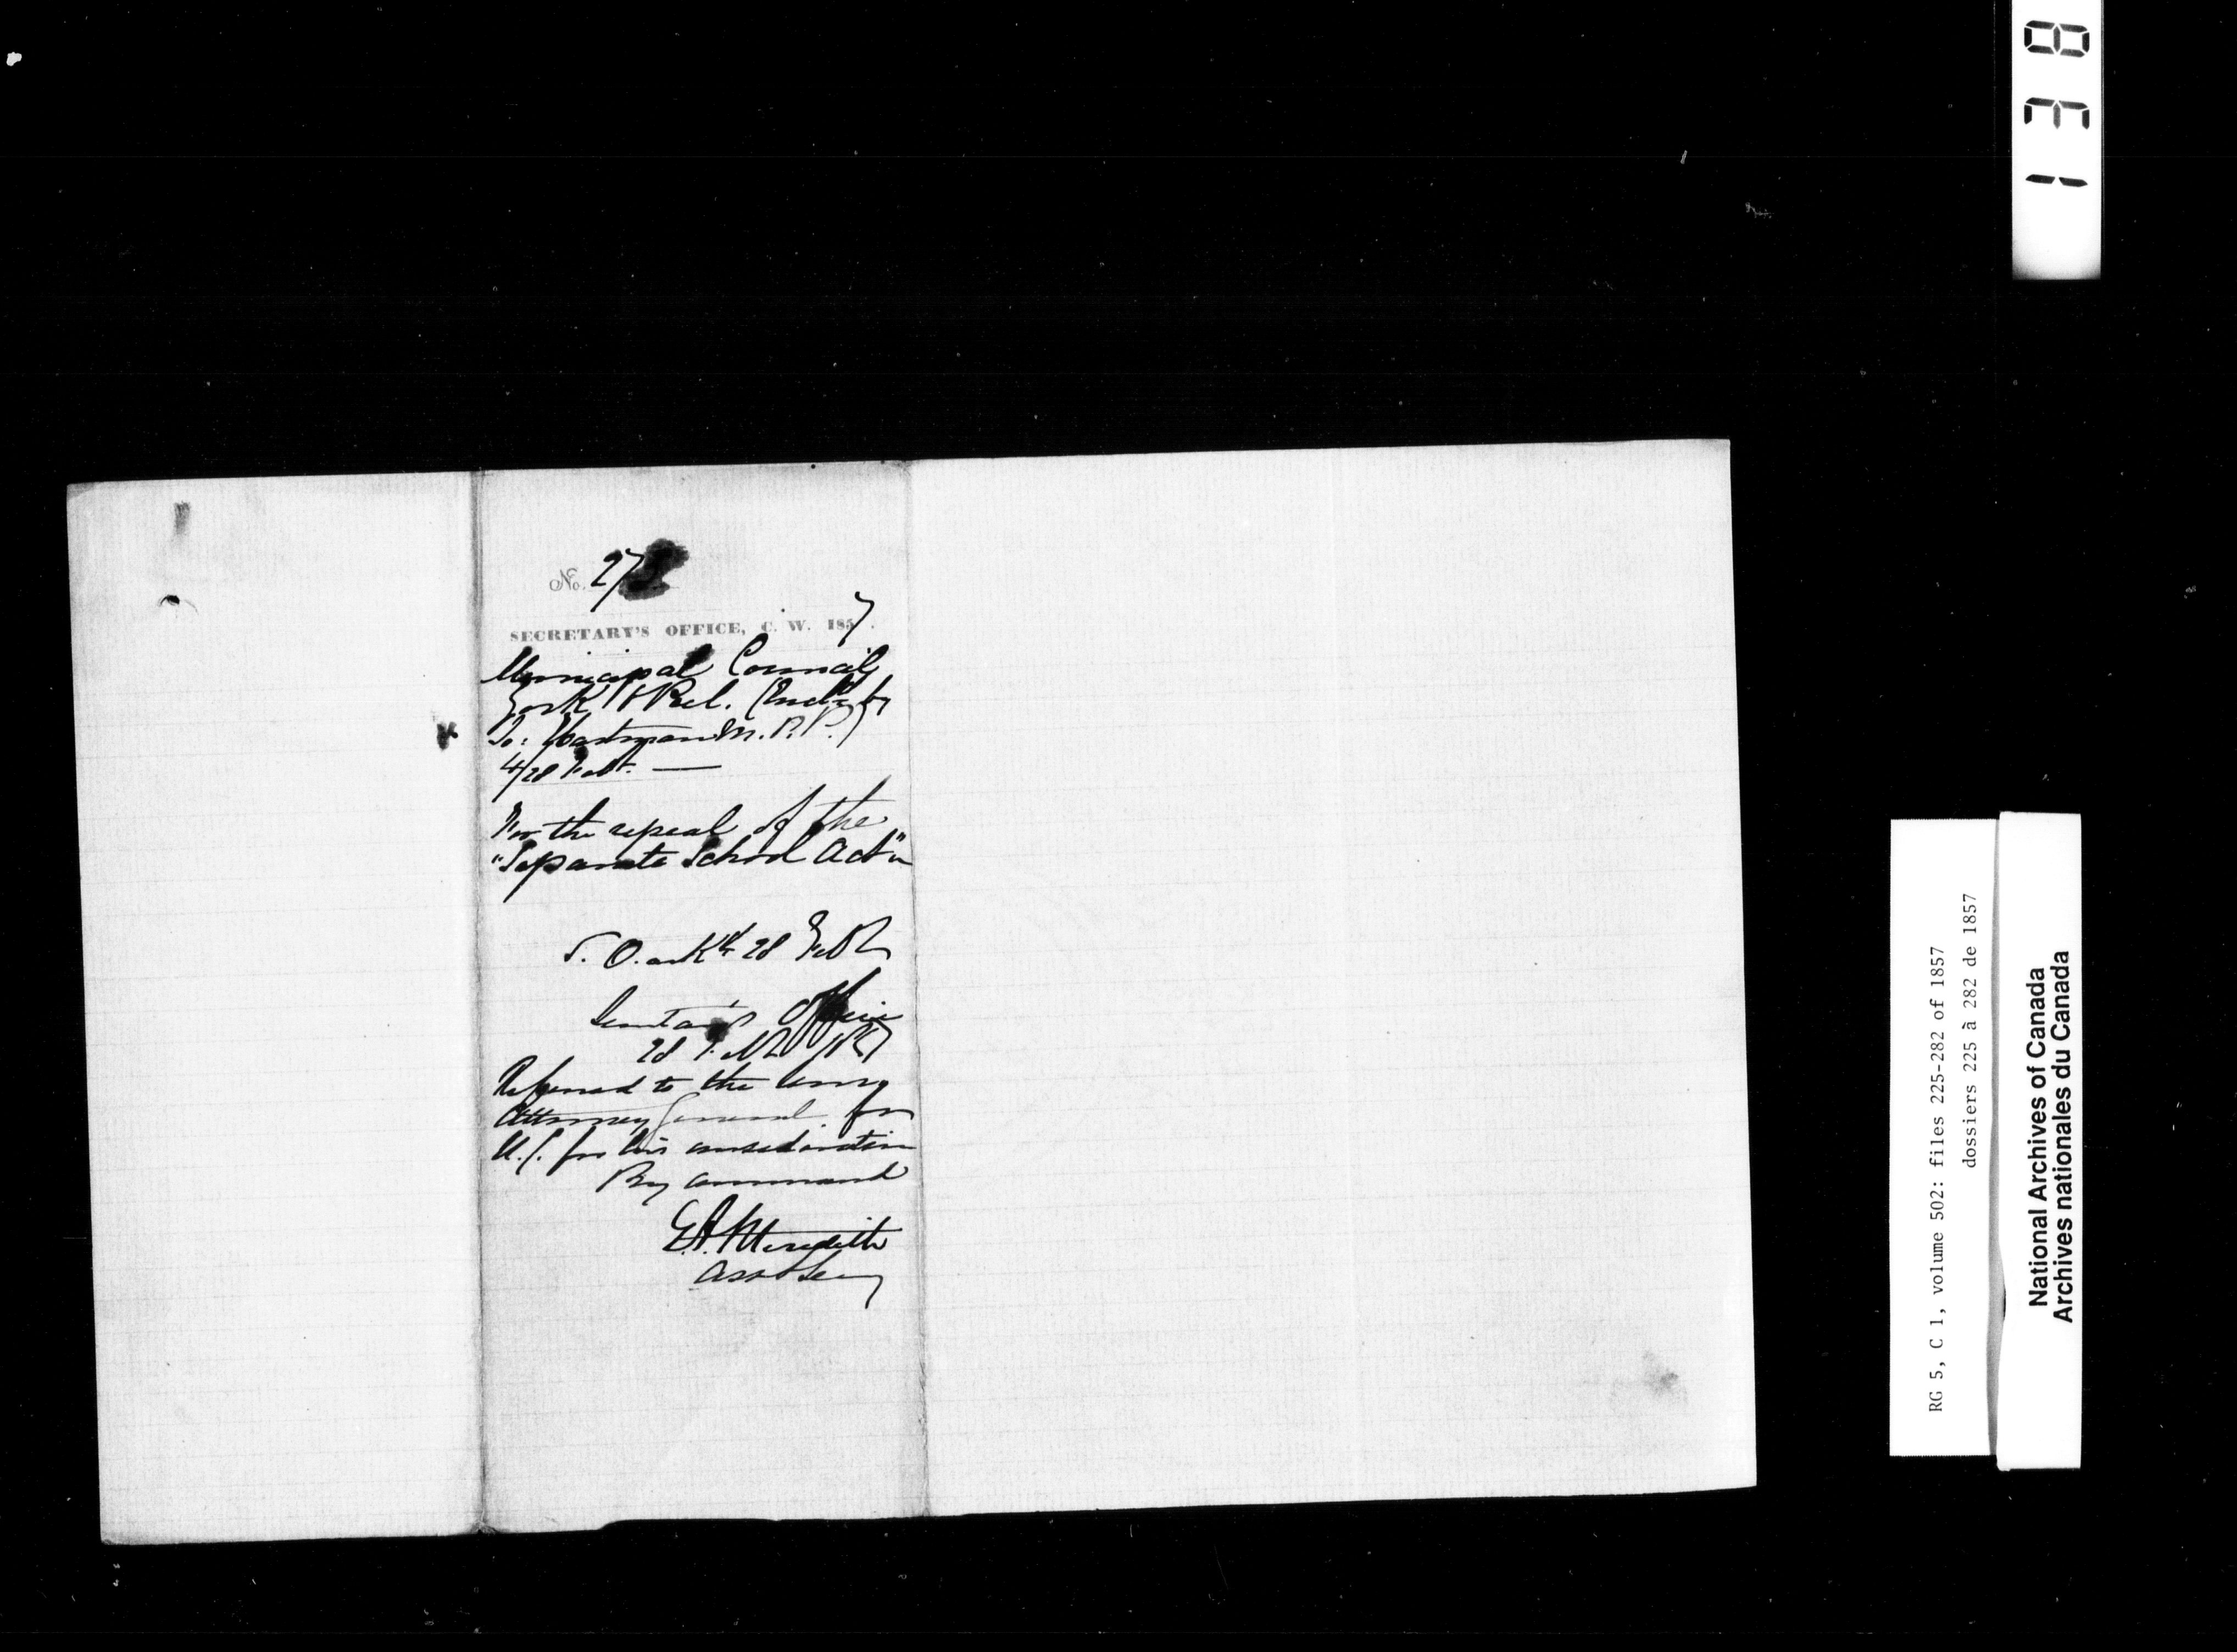 No. 27
SECRETARY'S OFFICE, C. W. 1857.
Municipal Council
York & Peel. (Encd by
Jo: Hartman M.P.P.)
4/28 Feby. —
For the repeal of the
"Separate School Act"
S. O. ackd 28 Feby
Secretary's Office
28 Feby 1857
Referred to the Honry
Attorney General for
U.C. for his consideration
By command
E.A. Meredith
Asst Secy
138
RG 5, C 1, volume 502: files 225-282 of 1857
dossiers 225 à 282 de 1857
National Archives of Canada
Archives nationales du Canada